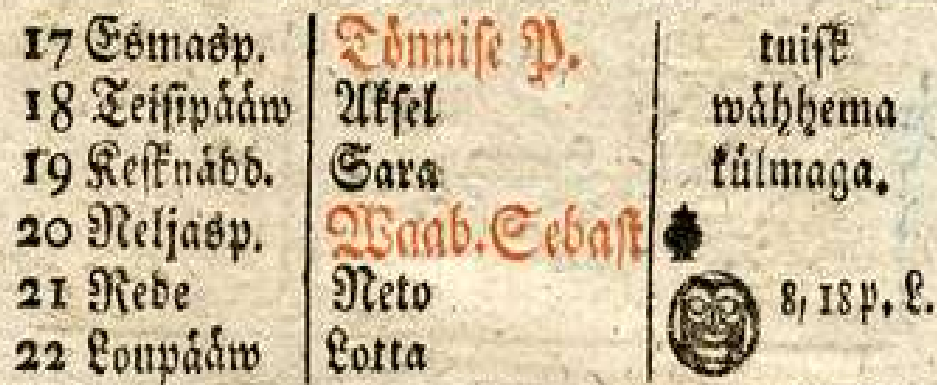 17 Esmasp. Tönnise P. tuisk
18 Teisipääw Aksel wähhema
19 Kesknädd. Sara külmaga.
20 Neljasp. Waab. Sebast
21 Rede Neto 8, 18 p. L.
22 Loupääw Lotta